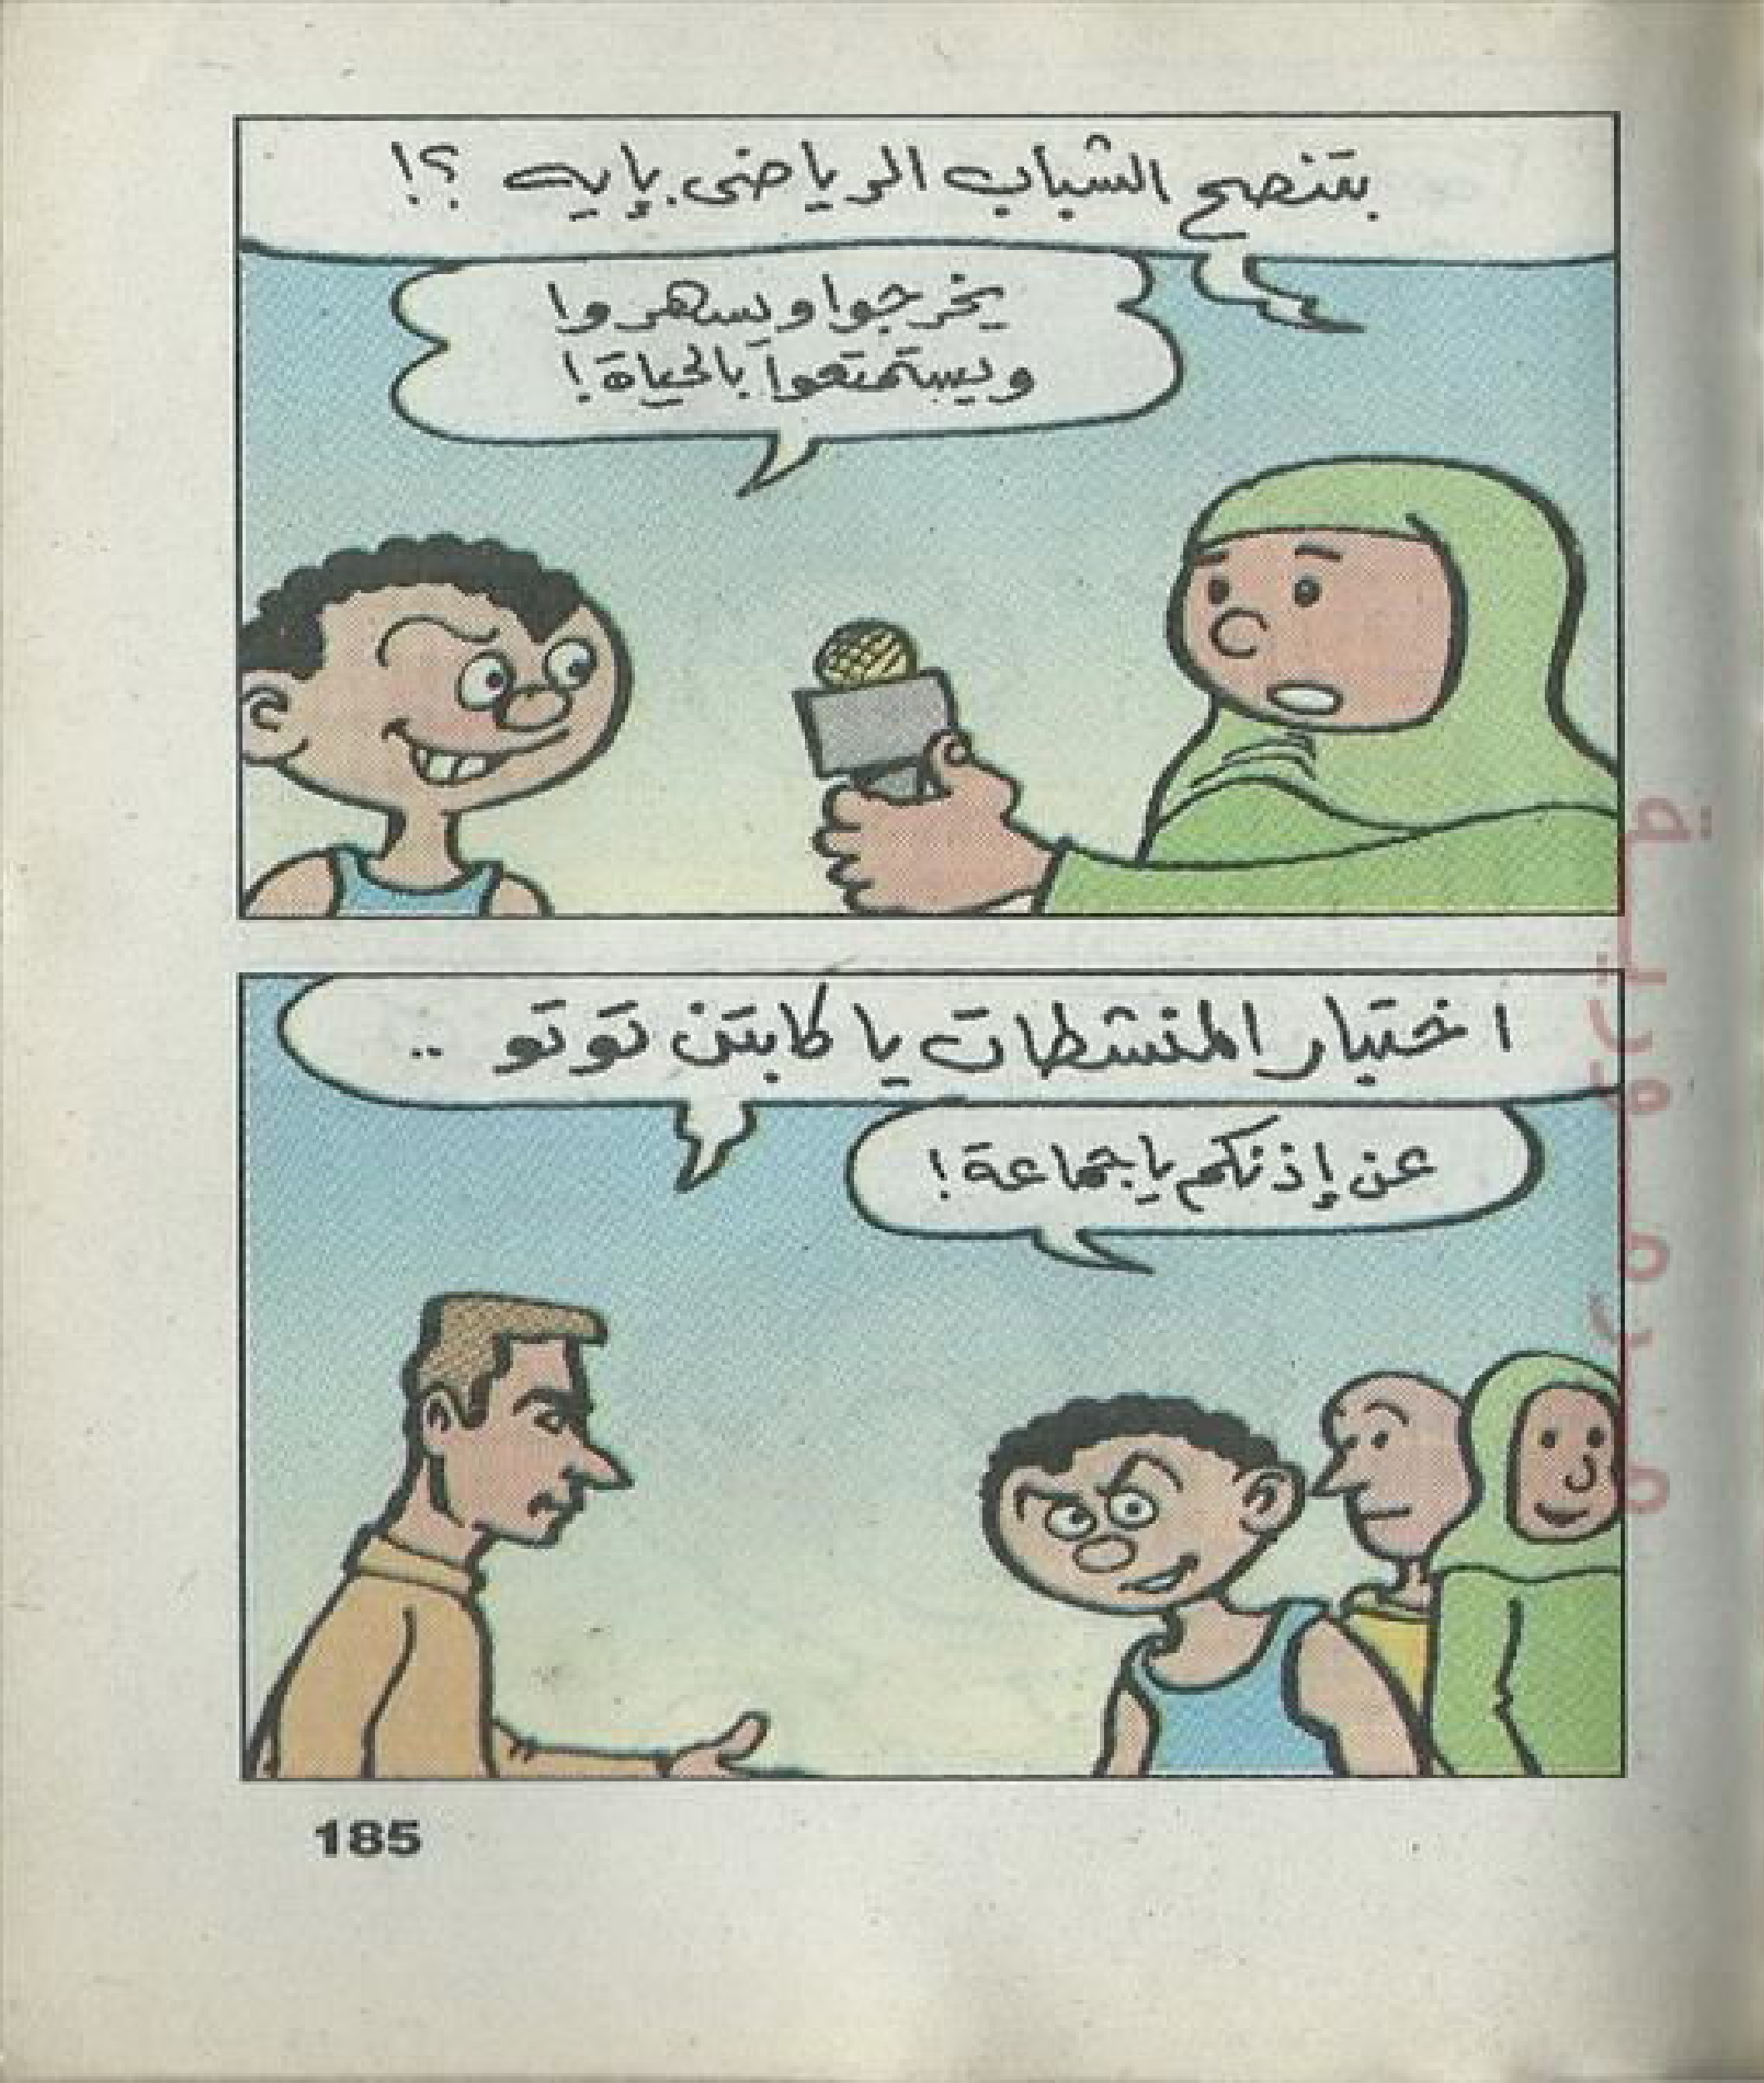 بتنصح الشباب الرياضى بإيه ؟!
يخرجوا ويسهروا
ويستمتعوا بالحياة !
اختبار المنشطات يا كابتن توتو ..
عن إذنكم يا جماعة !
185